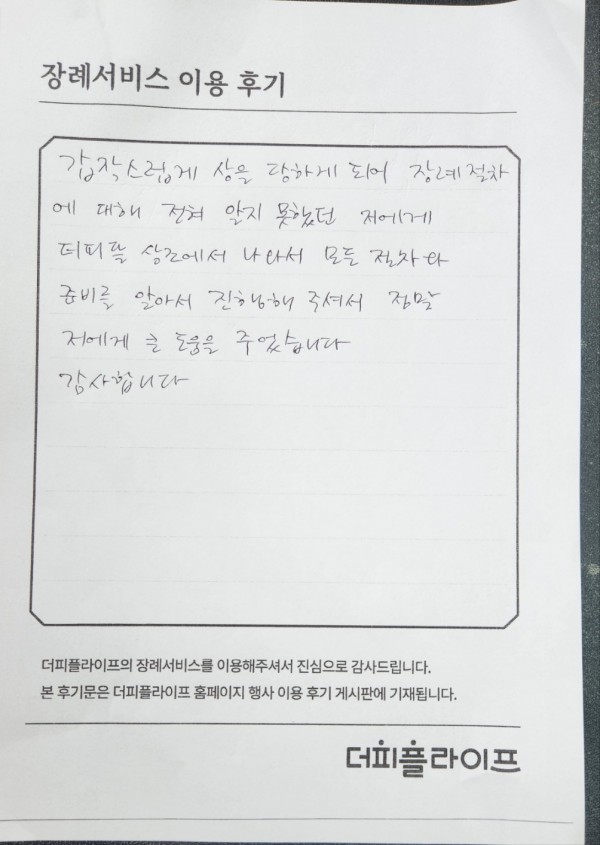 장례서비스 이용 후기
갑작스럽게 상을 당하게 되어 장례절차
에 대해 전혀 알지 못했던 저에게
더피플 상조에서 나와서 모든 절차와
준비를 알아서 진행해 주셔서 정말
저에게 큰 도움을 주었습니다
감사합니다
더피플라이프의 장례서비스를 이용해주셔서 진심으로 감사드립니다.
본 후기문은 더피플라이프 홈페이지 행사 이용 후기 게시판에 기재됩니다.
더피플라이프